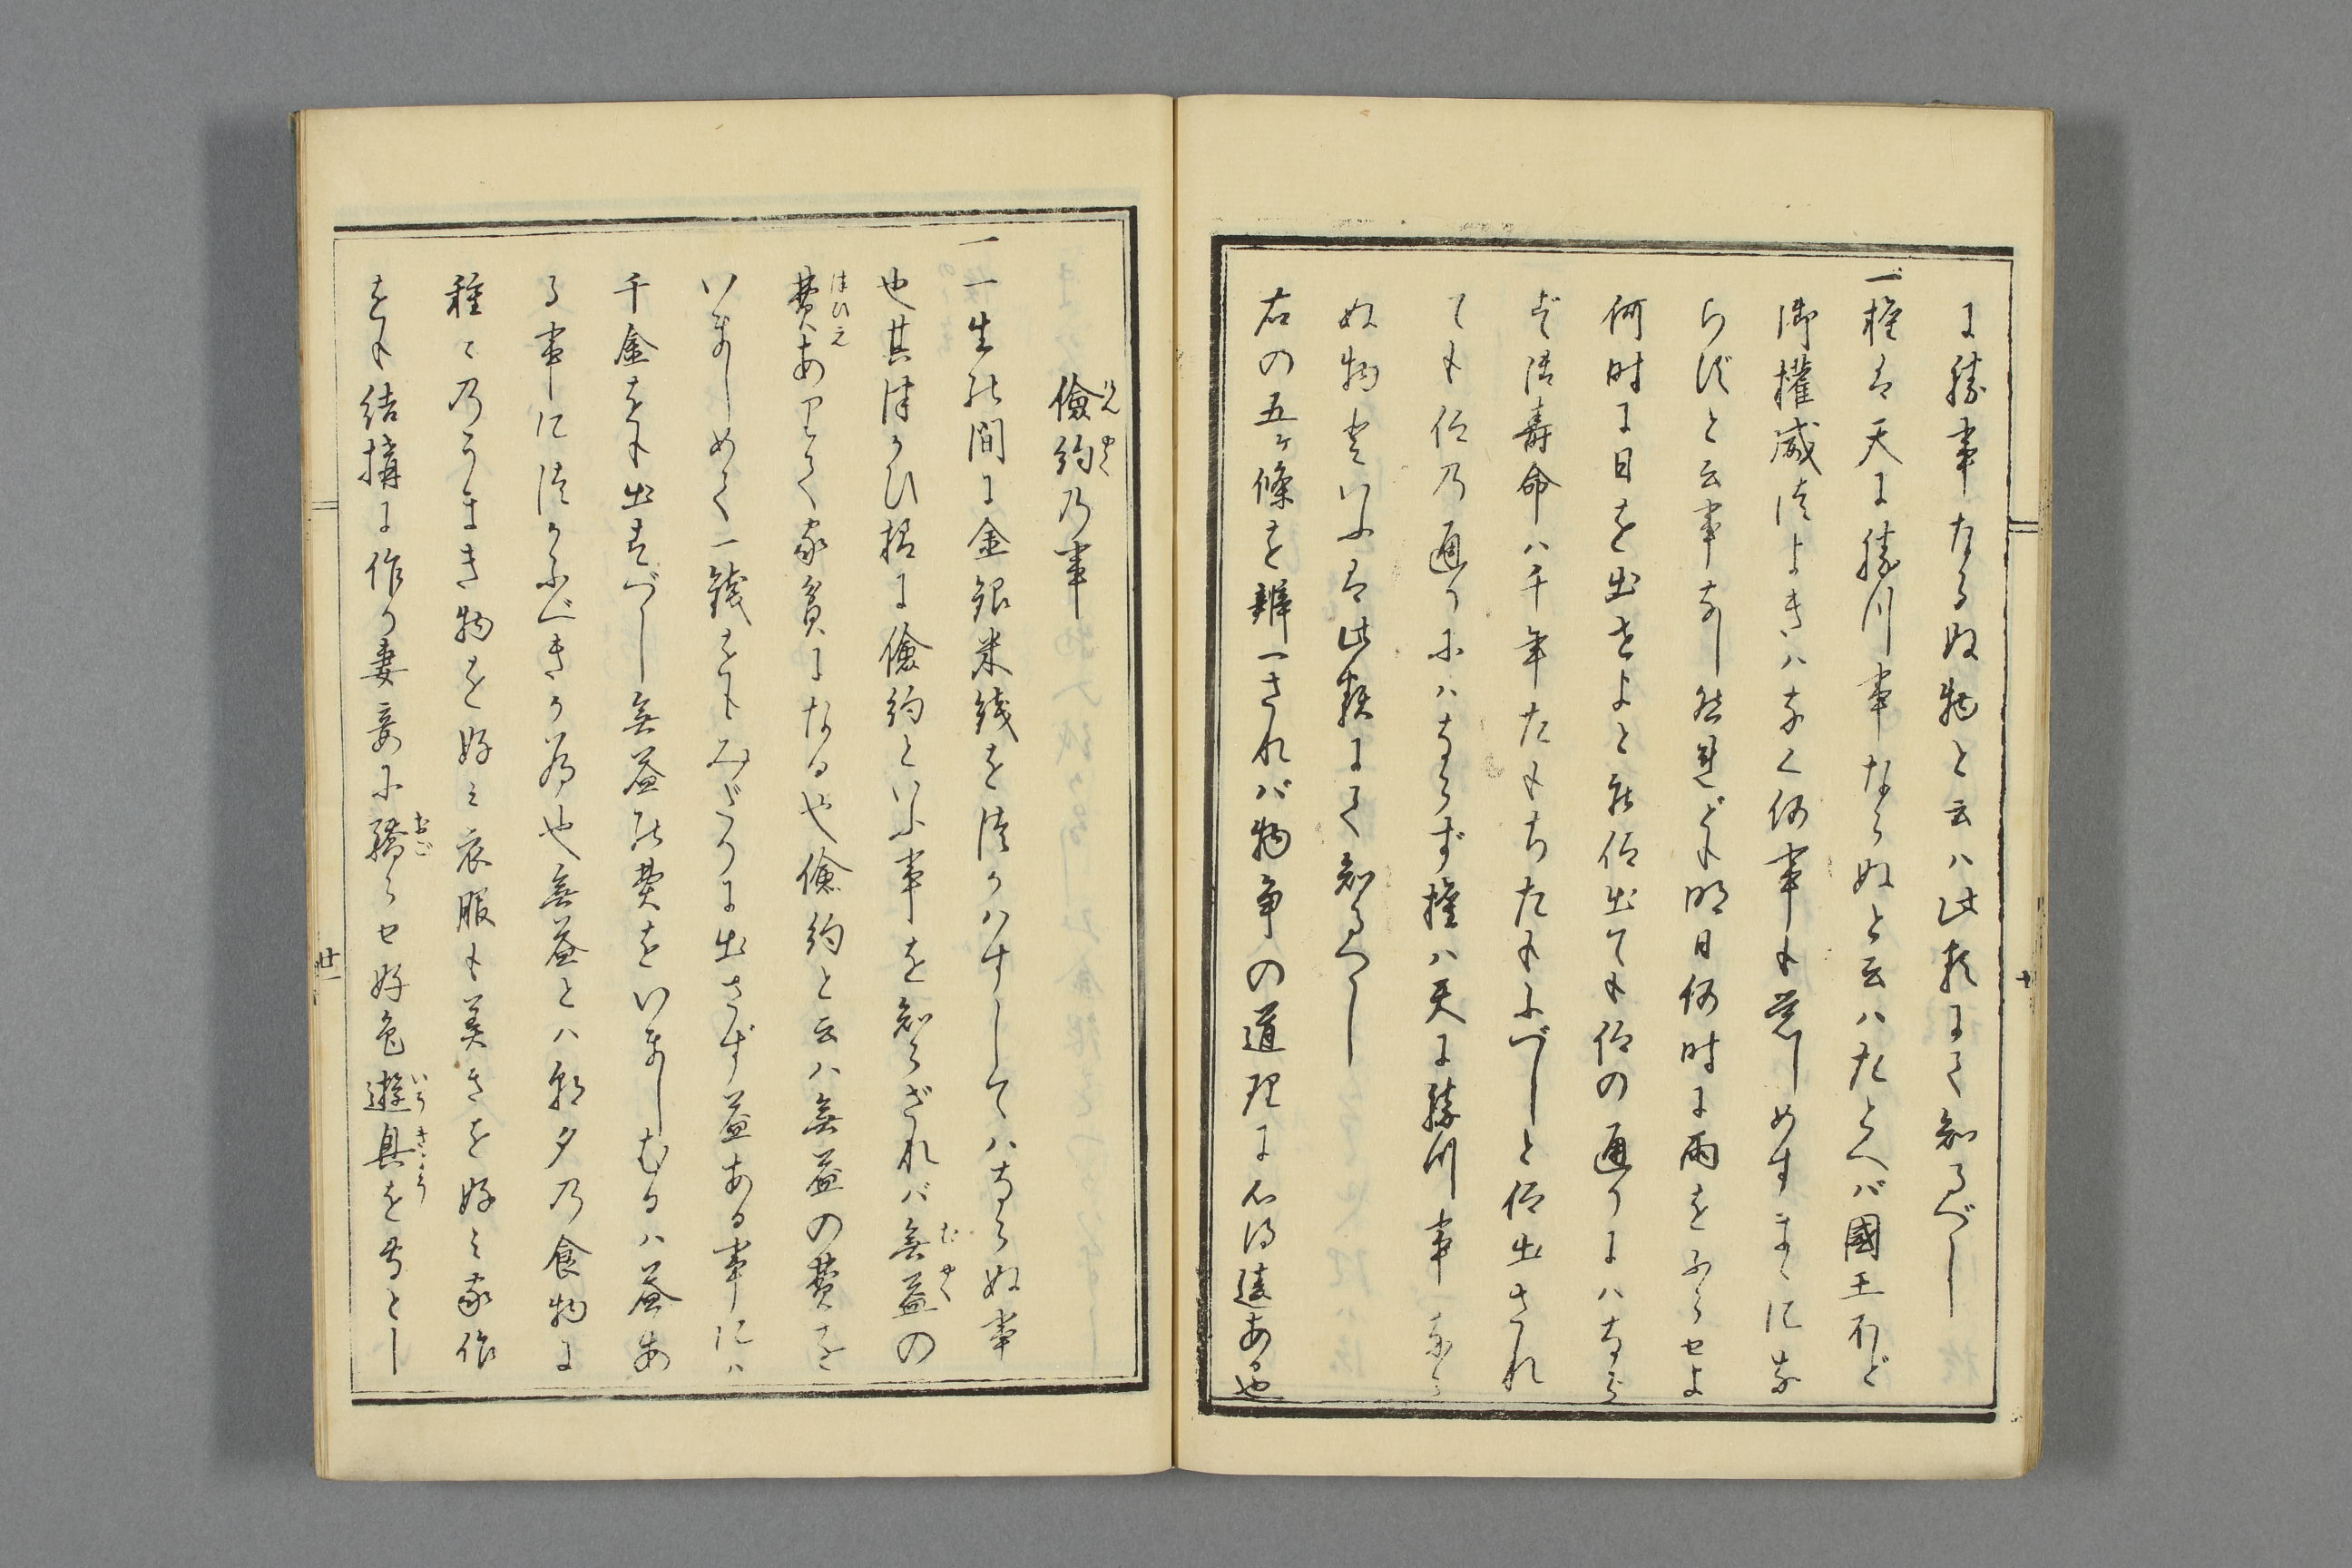 に勝事ならぬ物と云ハ此類にて知るべし
一権は天に勝川事ならぬと云ハたとへバ國王などゝ
御權威つよきハなく何事も覚しめすまゝにな
らずと云事なし然連ども明日何時に雨をふらせよ
何時に日を出せよと被仰出ても仰の通りにハならず
ず活壽命ハ千年たもちたまふべしと仰出され
ても仰乃通りにハならず權ハ天に勝川事ならぬ
ぬ物といふは此類にて知るべし
右の五ヶ條を辨へされバ物争の道理に心得違ある也
儉約乃事
けんやく
一一生の間に金銀米銭をつかハすしてハならぬ事
也其つかひ様に儉約といふ事を知らざれバ無益の
むやく
費ありて家貧になる也儉約と云ハ無益の費を
ついえ
いましめて一銭をもみだりに出さず益ある事にハ
千金をも出すべし無益の費をいましむるハ益あ
る事につかふべきが為也無益とハ朝夕乃食物に
種々乃うまき物を好ミ衣服も美きを好ミ家作
をも結構に作り妻妾に驕らせ好色遊具を専とし
おご
いうきよう
廿一